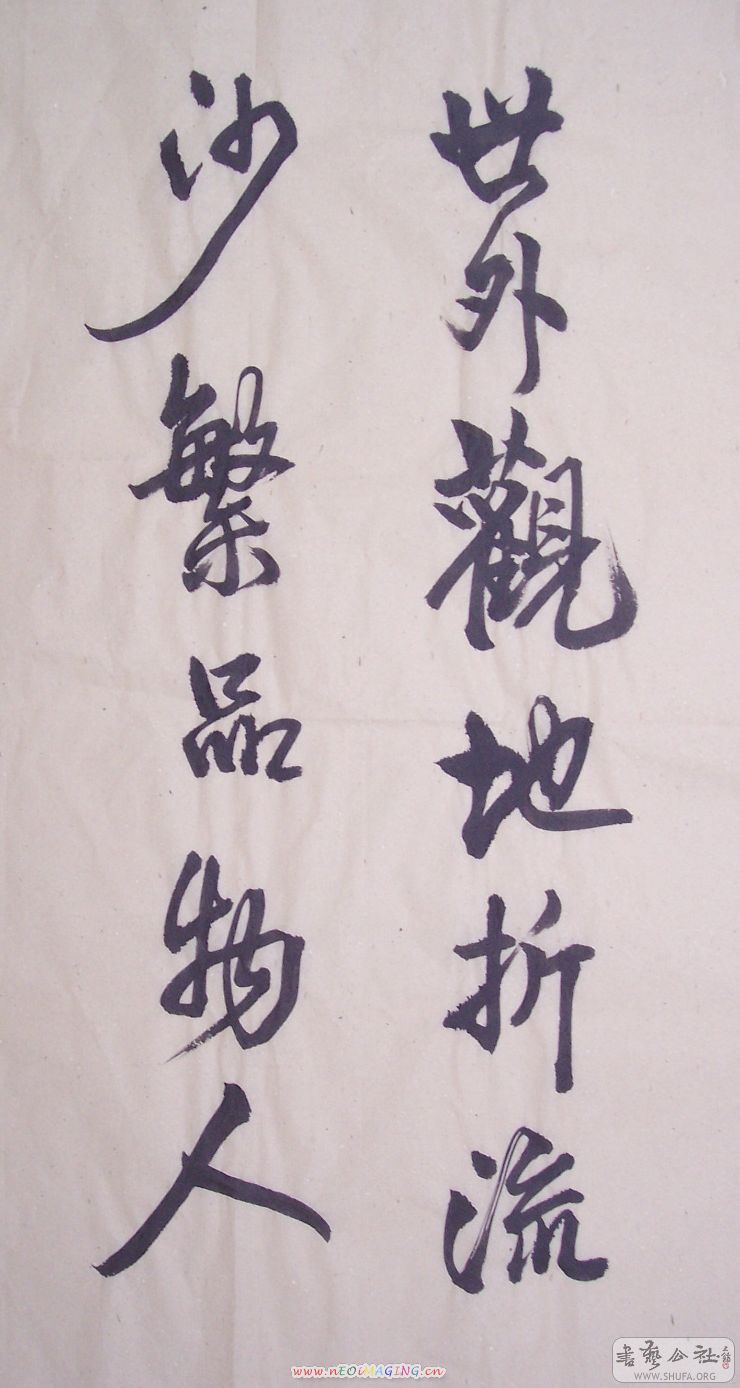 世外觀地折流
沙繁品物人
www.nEOiMAGING.cn
書藝公社
WWW.SHUFA.ORG